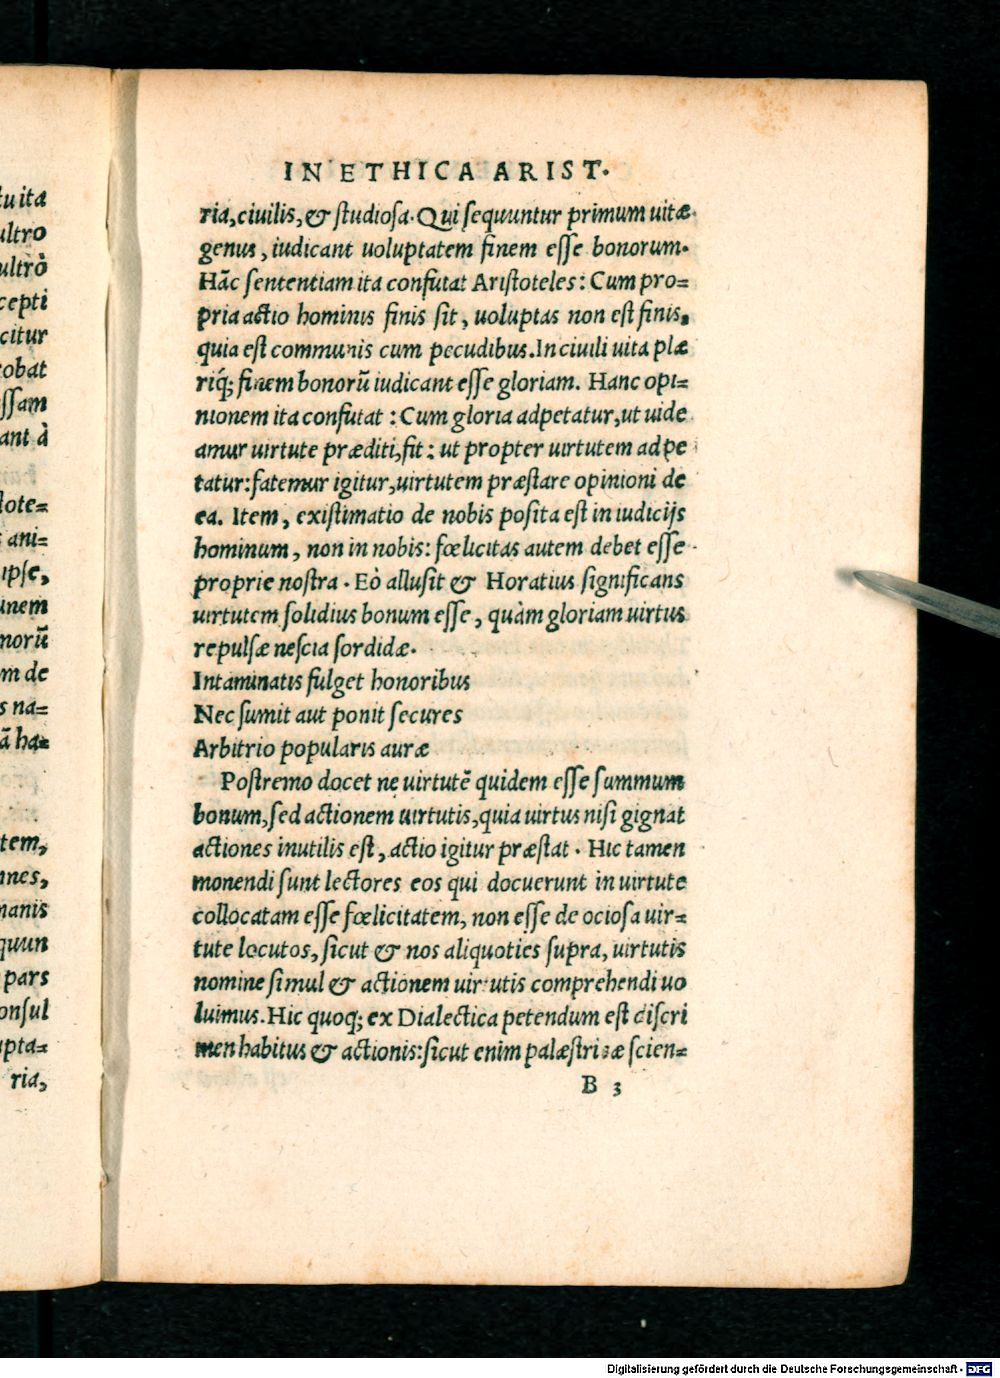 IN ETHICA ARIST.
ria, ciuilis, & studiosa. Qui sequuntur primum uitæ
genus, iudicant uoluptatem finem esse bonorum.
Hāc sententiam ita confutat Aristoteles: Cum pro=
pria actio hominis finis sit, uoluptas non est finis,
quia est communis cum pecudibus. In ciuili uita plæ
riq; finem bonorū iudicant esse gloriam. Hanc opi=
nionem ita confutat: Cum gloria adpetatur, ut uide
amur uirtute præditi, fit: ut propter uirtutem adpe
tatur: fatemur igitur, uirtutem præstare opinioni de
ea. Item, existimatio de nobis posita est in iudicijs
hominum, non in nobis: fœlicitas autem debet esse
proprie nostra. Eò allusit & Horatius significans
uirtutem solidius bonum esse, quàm gloriam uirtus
repulsæ nescia sordidæ.
Intaminatis fulget honoribus
Nec sumit aut ponit secures
Arbitrio popularis auræ
Postremo docet ne uirtutē quidem esse summum
bonum, sed actionem uirtutis, quia uirtus nisi gignat
actiones inutilis est, actio igitur præstat. Hic tamen
monendi sunt lectores eos qui docuerunt in uirtute
collocatam esse fœlicitatem, non esse de ociosa uir=
tute locutos, sicut & nos aliquoties supra, uirtutis
nomine simul & actionem uirtutis comprehendi uo
luimus. Hic quoq; ex Dialectica petendum est discri
men habitus & actionis: sicut enim palæstricæ scien=
B 3
tu ita
ultro
ultrò
cepti
citur
obat
ssam
ant à
lote=
ani=
ipse,
unem
norū
m de
s na=
ā ha=
tem,
nnes,
manis
quun
pars
onsul
upta=
ria,
Digitalisierung gefördert durch die Deutsche Forschungsgemeinschaft - DFG